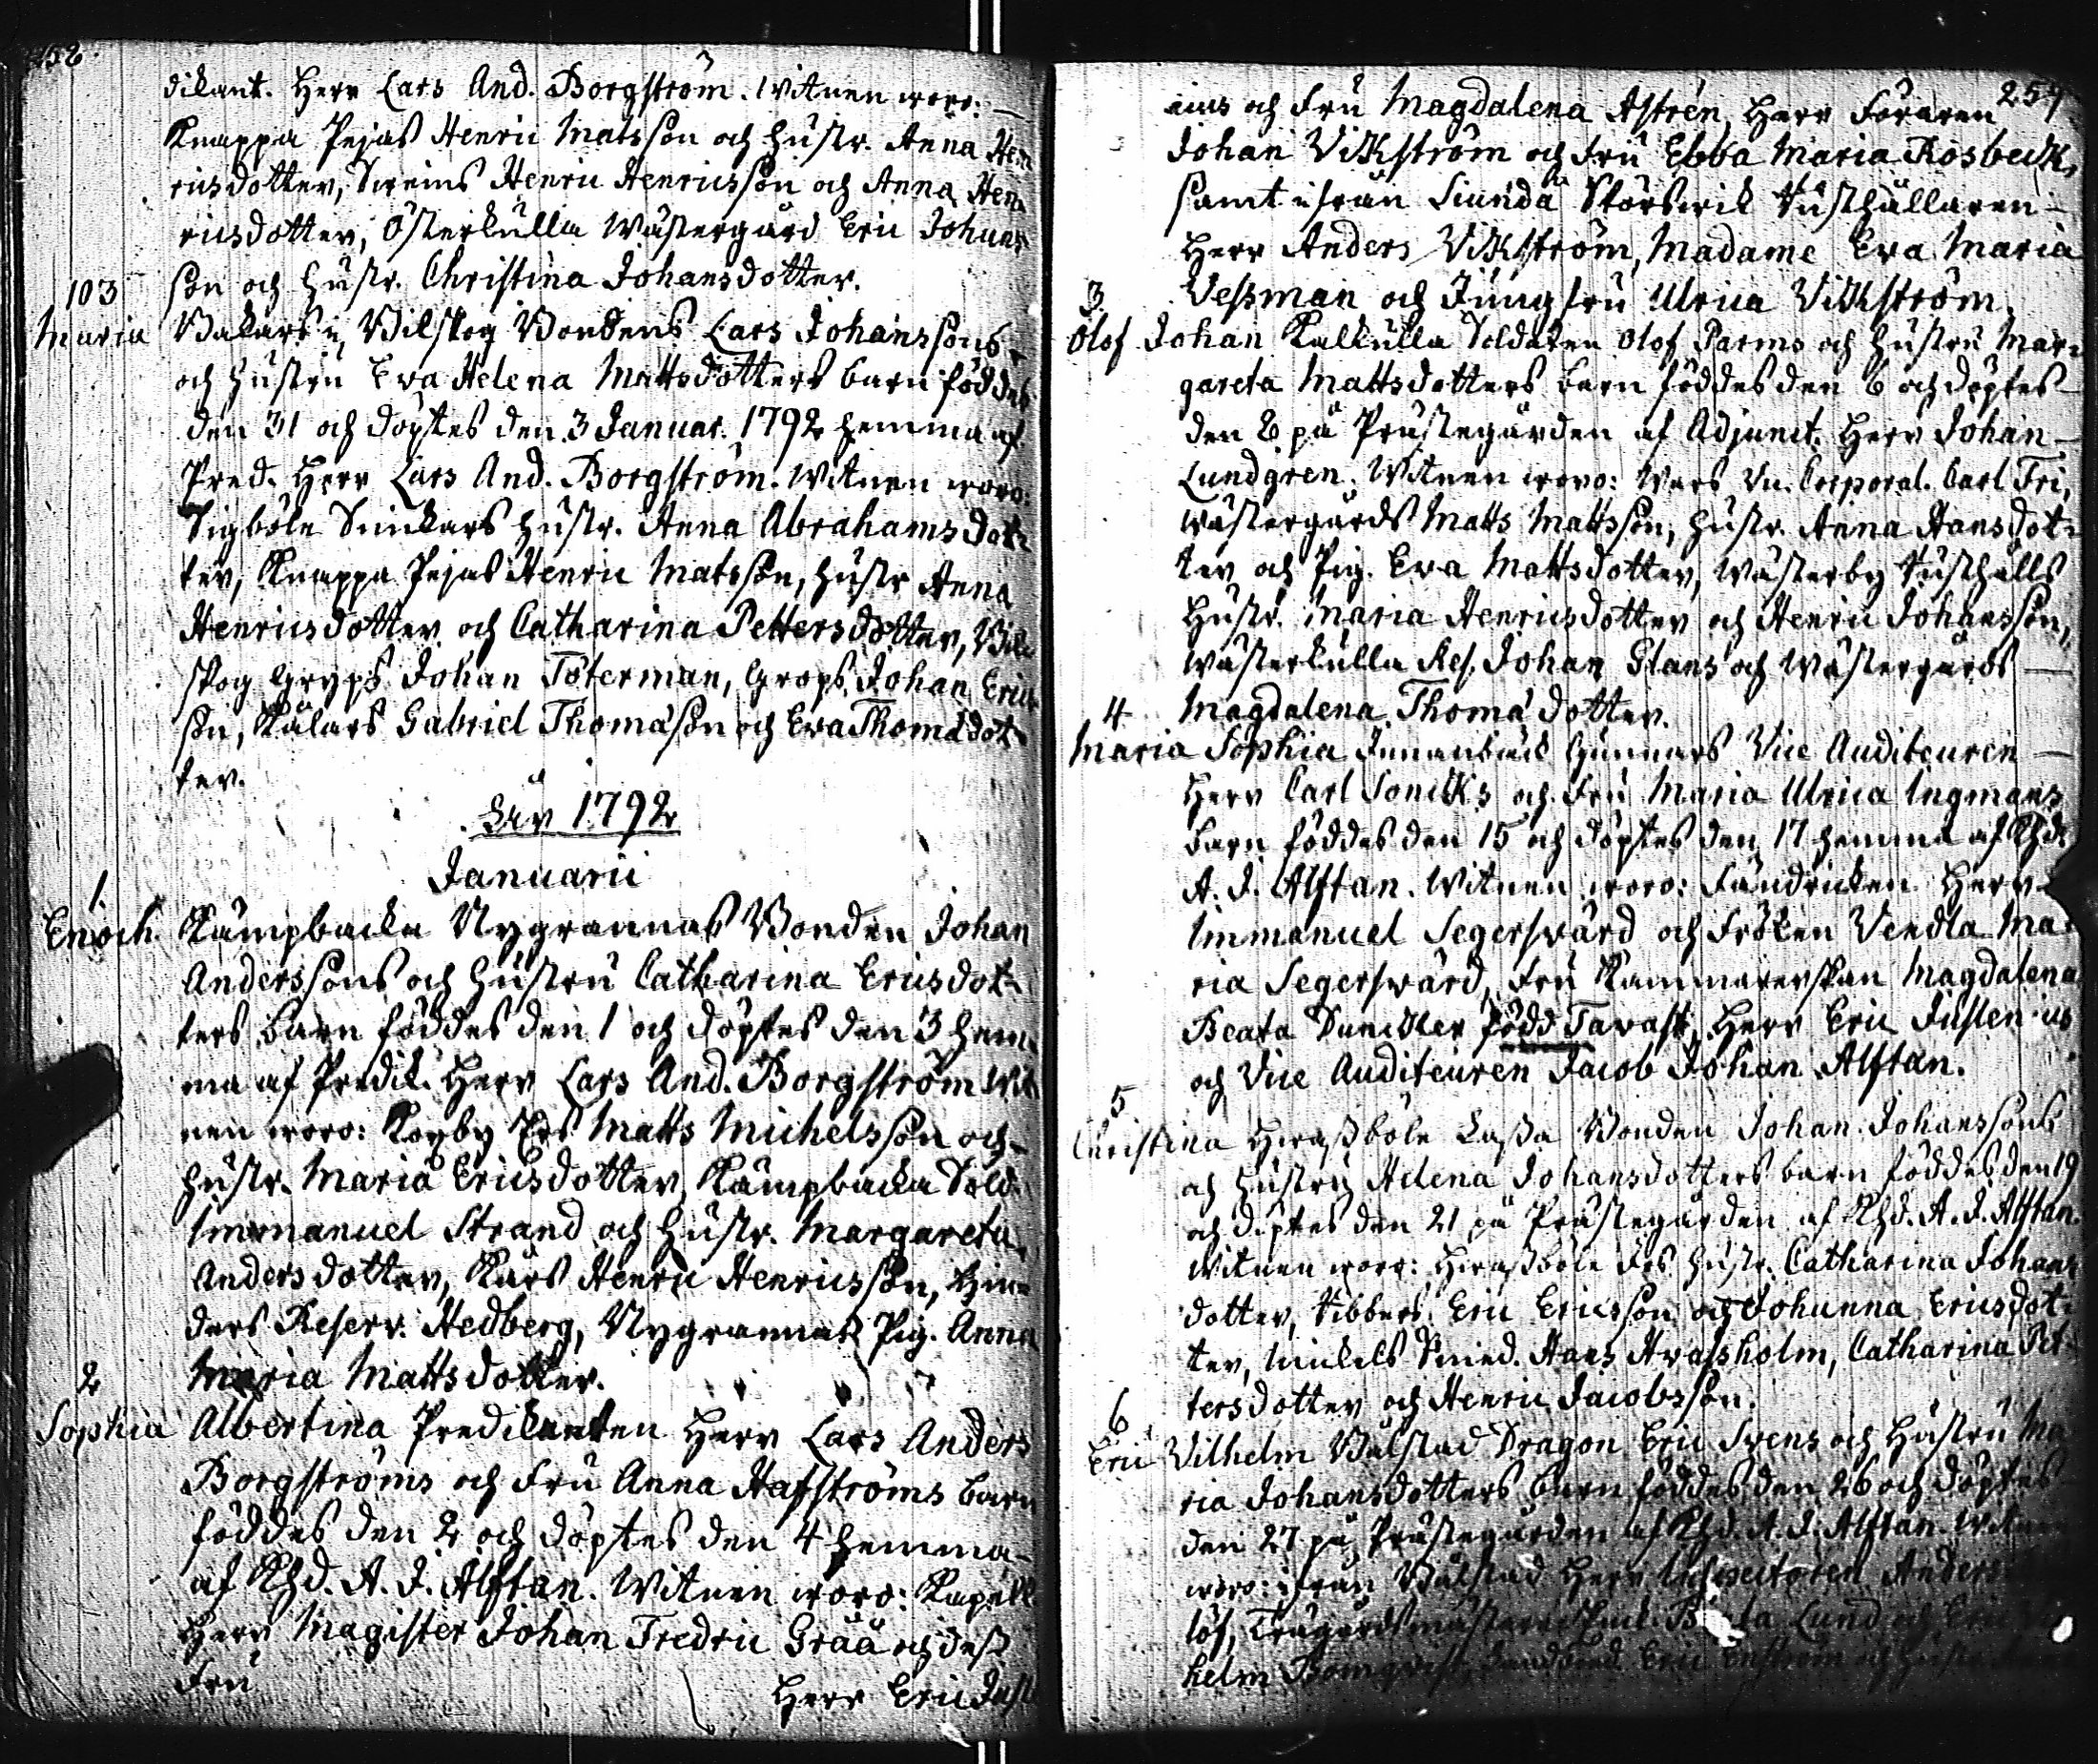 dikant. Herr Lars And. Borgström. Witnen woro:
Knappa Pejas Henric Matsson och hustr. Anna Hen
ricsdotter, Sweins Henric Henricsson och Anna Hen
ricsdotter, Österkulla Wästergård Eric Johans
son och hustr. Christina Johansdotter.
103
Maria Bakars i Vilskog Bondens Lars Johanssons
och hustru Eva Helena Mattsdotters barn föddes
den 31 och döptes den 3 Januar. 1792 hemma af
Pred. Herr Lars And. Borgström. Witnen woro:
Sigböle Snickars hustr. Anna Abrahamsdot
ter, Knappa Pejas Henric Matsson, hustr Anna
Henricsdotter och Catharina Pettersdotter, Vil
skog Gryps Johan Töterman, Grops Johan Erics
son, Kålars Gabriel Thomasson och Eva Thomædot
ter.
År 1792
Januarii
1.
Enoch. Kämpbacka Nygrannas Bonden Johan
Anderssons och hustru Catharina Ericsdot
ters barn föddes den 1 och döptes den 3 hem
ma af Predik. Herr Lars And. Borgström Wit
nen woro: Korby Ers Matts Michelsson och
hustr. Maria Ericsdotter, Kämpbacka Sold.
Immanuel Strand och hustr. Margareta
Andersdotter, Kärs Henric Henricsson, Hin
ders Reserv. Hedberg, Nygrannas Pig. Anna
2 Maria Mattsdotter.
Sophia Albertina Predikanten Herr Lars Anders
Borgströms och Fru Anna Hafströms barn
föddes den 2 och döptes den 4 hemma
af Khd. A. J. Alftan. Witnen woro: Kapell.
Herr Magister Johan Fredric Grää och dess
Fru
Herr Eric Just
257
nius och Fru Magdalena Astrén, Herr Föraren
Johan Vikström och Fru Ebba Maria Rosbeck,
samt ifrån Siunda Störsvik Rusthållaren
Herr Anders Vikström, Madame Eva Maria
3. Vessman och Jungfru Ulrica Vikström.
Olof Johan Kalkulla Soldaten Olof Parms och hustru Mar
gareta Mattsdotters barn föddes den 6 och döptes
den 8 på Prästegården af Adjunct. Herr Johan
Lundgren. Witnen woro: Wars Vic. Corporal. Carl Fri,
Wästergårds Matts Mattsson, hustr. Anna Hansdot
ter och Pig. Eva Mattsdotter, Wästerby Rusthålls
hustr. Maria Henricsdotter och Henric Johansson,
Wästerkulla Res. Johan Glans och Wästergårds
4 Magdalena Thomædotter.
Maria Sophia Innanbäck Gunnars Vice Auditeuren
Herr Carl Soncks och Fru Maria Ulrica Ingmans
barn föddes den 15 och döptes den 17 hemma af Khd.
A. J. Alftan. Witnen woro: Fändricken Herr
Immanuel Segersvärd och Fröken Vendla Ma
ria Segersvärd, Fru Kammarerskan Magdalena
Beata Dunckler född Tavast, Herr Eric Justenius
och Vice Auditeuren Jacob Johan Alftan.
5
Christina Heraßböle Lassa Bonden Johan Johanssons
och hustru Helena Johansdotters barn föddes den 19
och döptes den 21 på Prästegården af Khd. A. J. Alftan.
Witnen woro: Heraßböle hustr. Catharina Johans
dotter, Eric Ericsson och Johanna Ericsdot
ter, Smed. Hans Hvassholm, Catharina Pet
tersdotter och Henric Jacobsson.
6
Eric Vilhelm Bålstad Dragon Eric Svens och hustru Ma
ria Johansdotters barn föddes den 26 och döptes
den 27 på Prästegården af Khd. A. J. Alftan. Witnen
woro: ifrån Bålstad Herr Inspectoren Anders
löf, Trägårdsmästare Lund och
helm Blomqvist, Eric Enström och